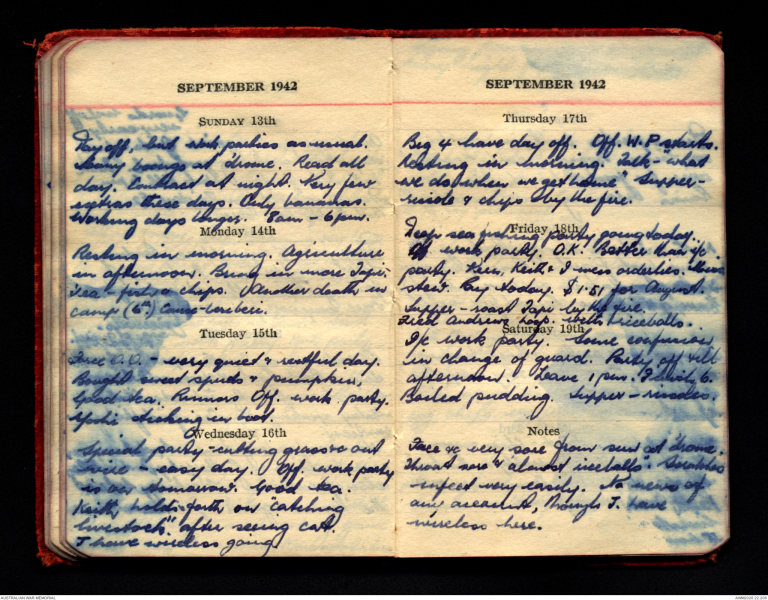 SEPTEMBER 1942
SUNDAY 13th
Day off, but work parties as usual.
at 'drome. Read all
day. Contract at night. Very few
extras these days. Only bananas.
Working days longer. 8am - 6pm.
Monday 14th
Resting in morning. Agriculture
in afternoon. Bring in more Tapi.
Tea - fish & chips. Another death in
camp (6th) Cause - beriberi.
Tuesday 15th
- very quiet & restful day.
Bought sweet spuds & pumpkin.
Good tea. Rumors Off. work party.
Yoshi dishing in boot.
Wednesday 16th
Special party - cutting grass & out
- easy day. Off. work party
is on tomorrow. Good tea.
Keith holds forth on "catching
livestock" after seeing cat.
J have wireless going
SEPTEMBER 1942
Thursday 17th
Big 4 have day off. Off. W.P starts.
Resting in morning. Talk - "what
we do when we get home" Supper -
rissole & chips by the fire.
Friday 18th
Deep sea fishing party going today.
Off work party. O.K. Better than
party. Ken, Keith & I mess orderlies.
stew. Pay today. $1.51 for August.
Supper - roast Tapi by the fire.
Fred Andrews hosp. with riceballs.
Saturday 19th
I/c work party. Some confusion
in change of guard. Party off till
afternoon. Leave 1 pm. Finish 6.
Boiled pudding. Supper - rissoles.
Notes
Face &c very sore from sun at 'drome.
Throat sore & almost riceballs. Scratches
infect very easily. No news of
any account, though J. have
wireless here.
AUSTRALIAN WAR MEMORIAL